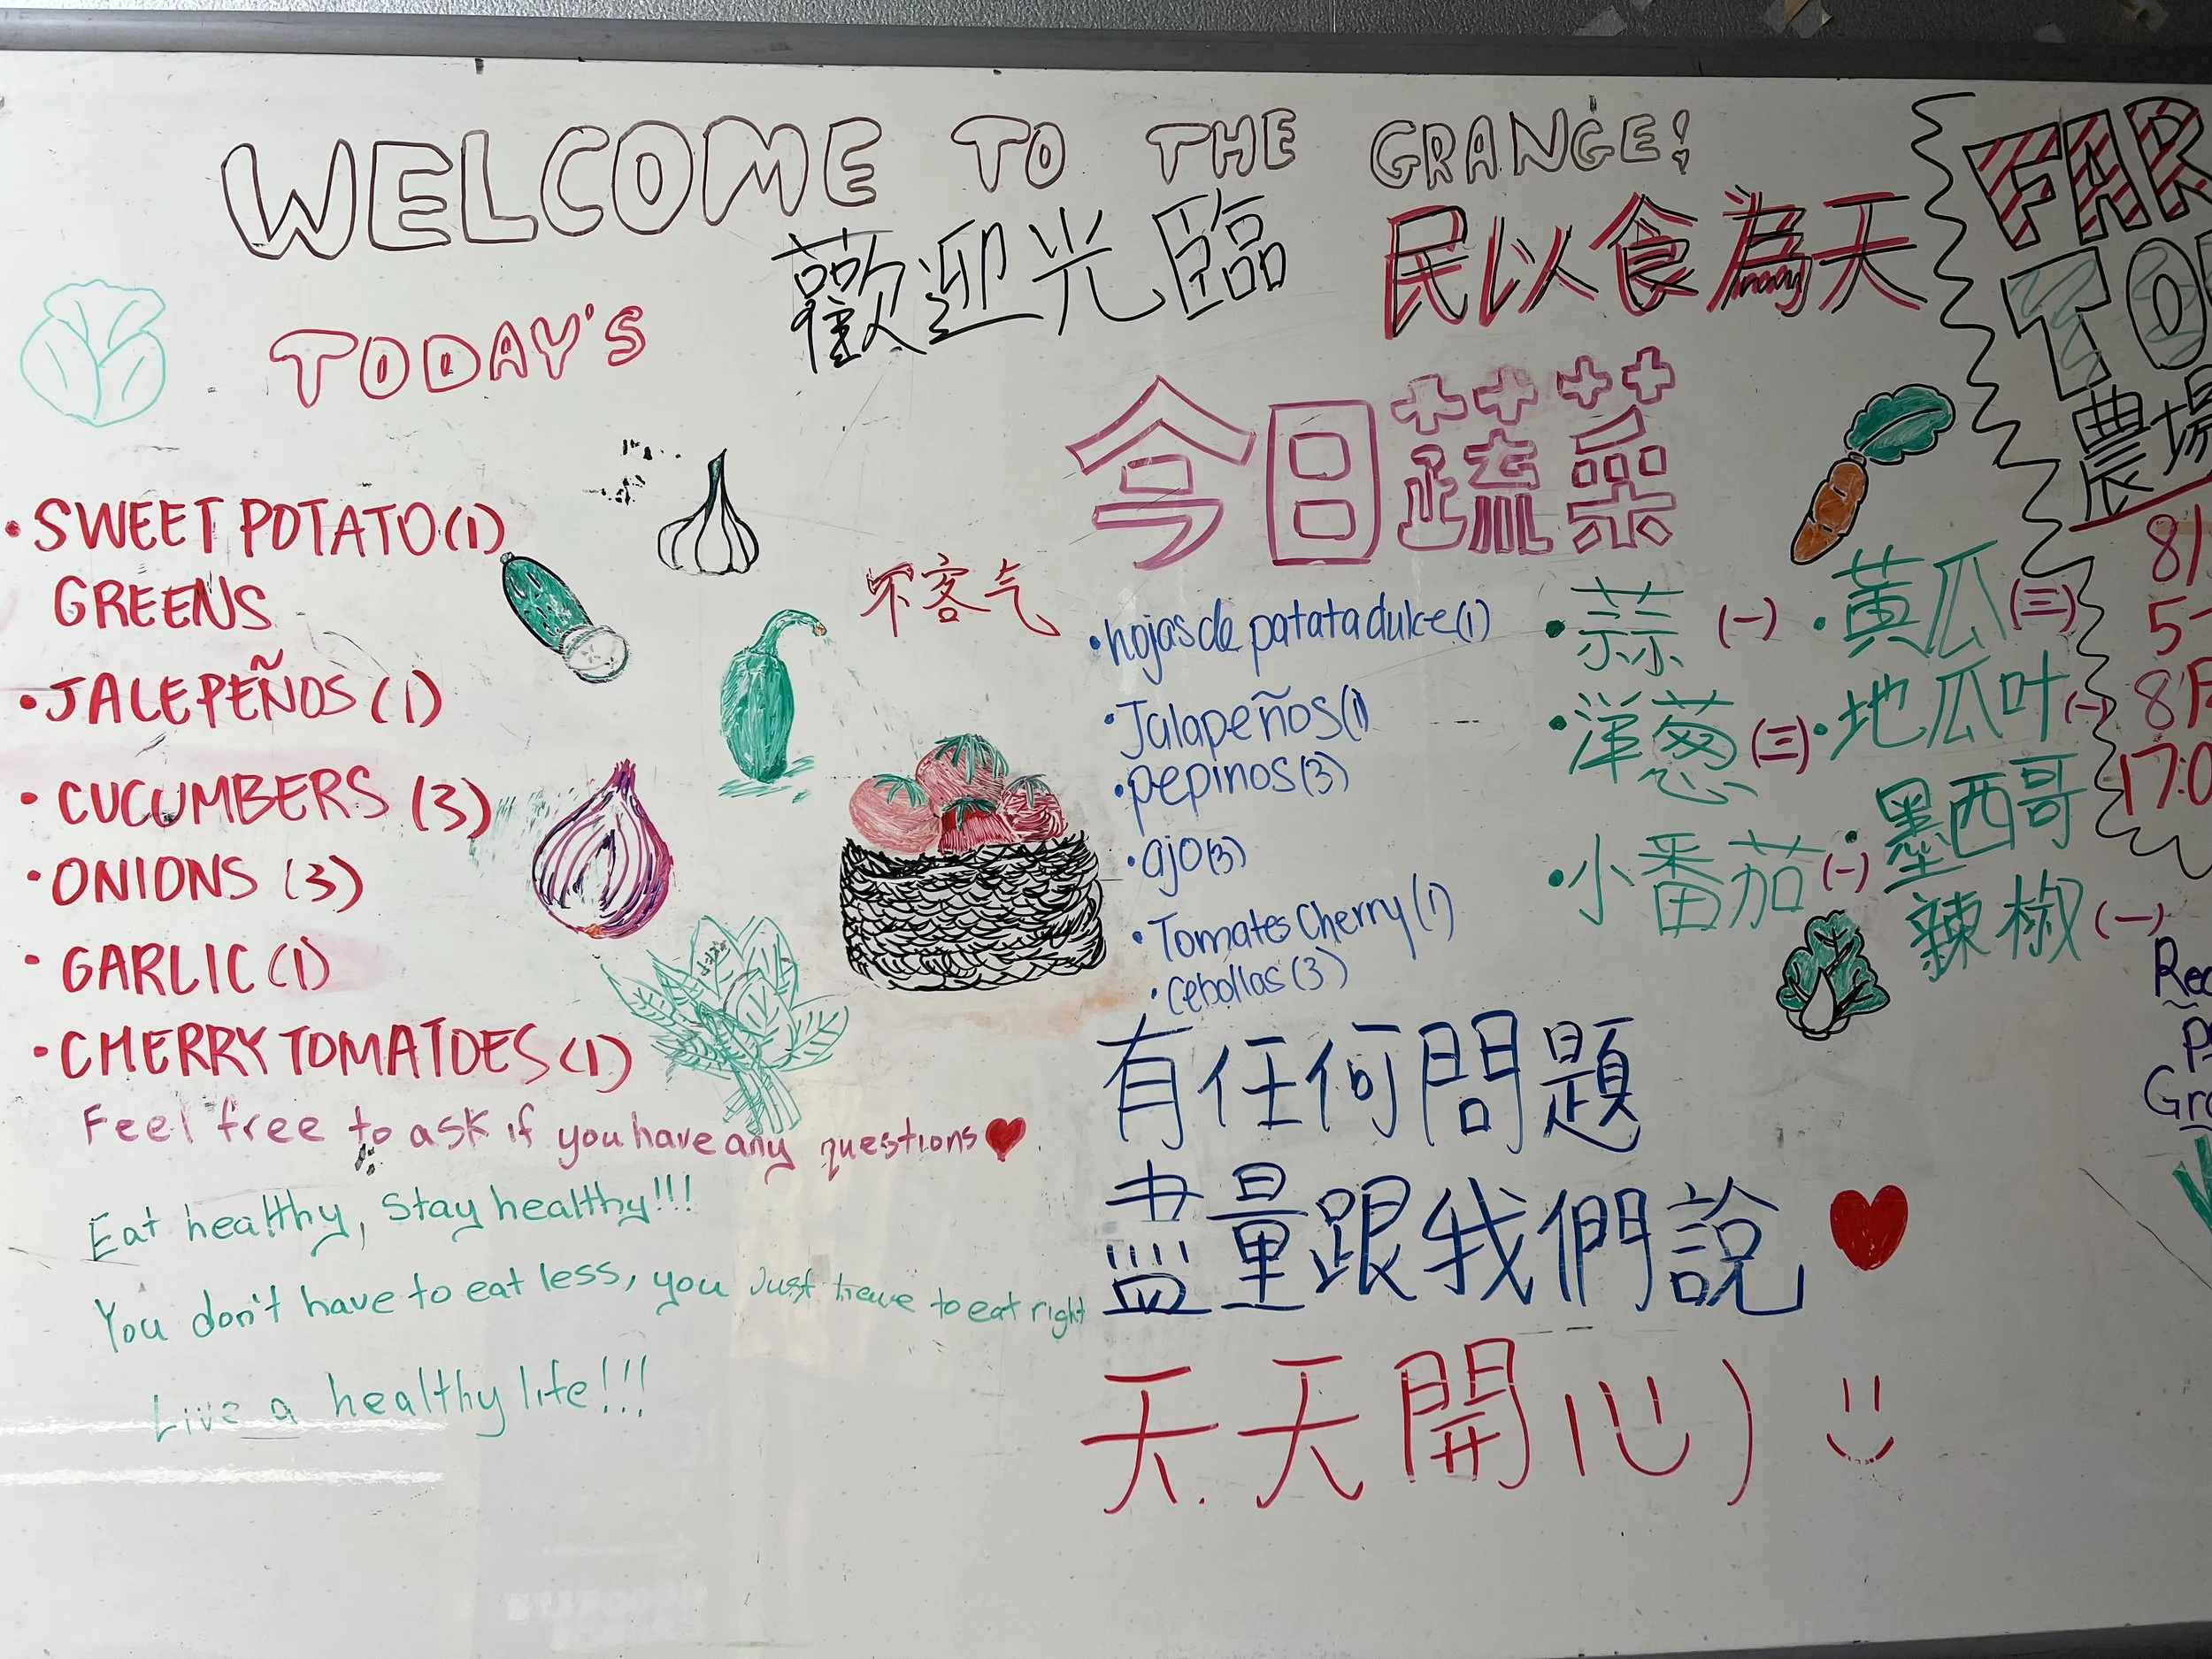 WELCOME TO THE GRANGE!
歡迎光臨
民以食為天
TODAY'S
今日蔬菜
• SWEET POTATO (1)
GREENS
• JALEPEÑOS (1)
• CUCUMBERS (3)
• ONIONS (3)
• GARLIC (1)
• CHERRY TOMATOES (1)
不客气
• hojas de patata dulce (1)
• Jalapeños (1)
• pepinos (3)
• ajo (3)
• Tomates Cherry (1)
• cebollas (3)
• 蒜 (一)
• 洋葱 (三)
• 小番茄 (一)
• 黄瓜 (三)
• 地瓜叶 (一)
• 墨西哥
辣椒 (一)
Feel free to ask if you have any questions
Eat healthy, stay healthy!!!
You don't have to eat less, you Just have to eat right
Live a healthy life!!!
有任何問題
盡量跟我們說
天天開心)
FAR
TO
農場
8/
5-
8月
17:0
Rec
P
Gra